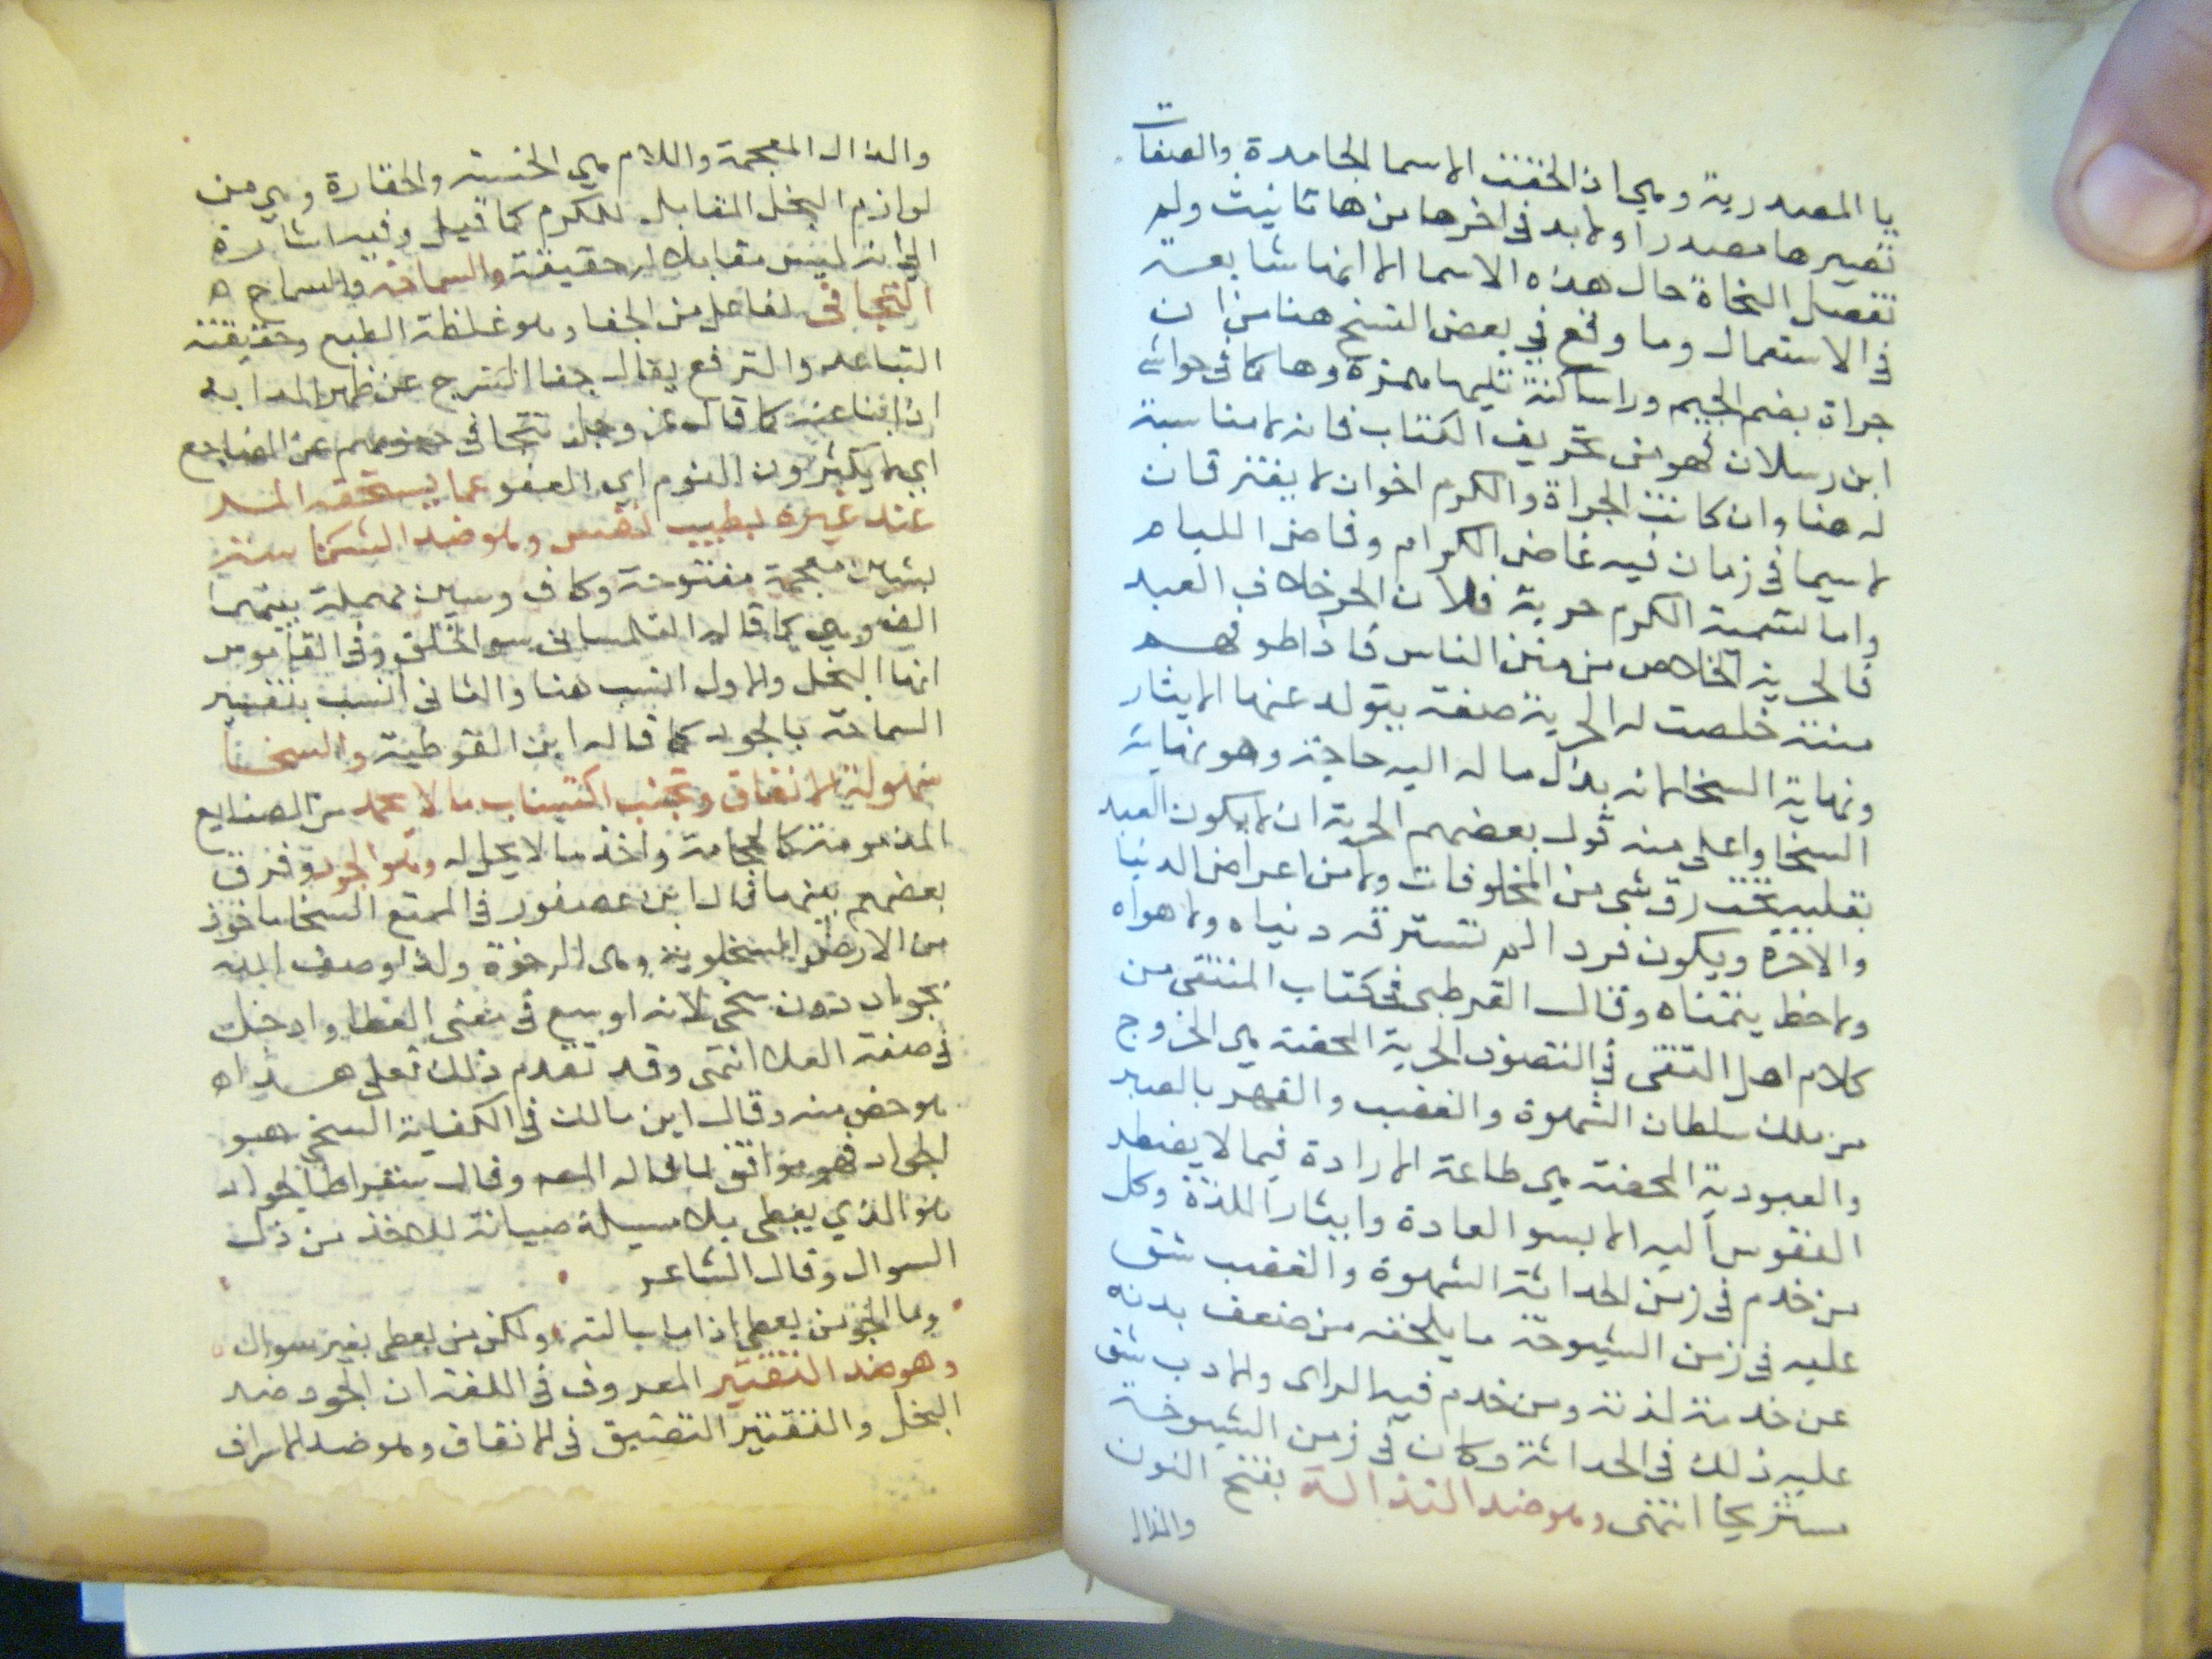 يا المصدرية وهي اذ الحقت الاسما الجامدة والصفات
تصيرها مصدرا ولا بد في اخرها من ها تانيث ولم
تفصل النحاة حال هذه الاسما الا انها شايعة
في الاستعمال وما وقع في بعض النسخ هنا من ان
جراة بضم الجيم ورا ساكنة تليها همزة وها كما في حواشي
ابن رسلان فهو من تحريف الكتاب فانه لا مناسبة
له هنا وان كانت الجراة والكرم اخوان لا يفترقان
لا سيما في زمان فيه غاض الكرام وفاض الليام
واما تسمية الكرم حرية فلان الحر خلاف العبد
فالحرية الخلاص من منن الناس فاذا طوقهم
مننه خلصت له الحرية صفة يتولد عنها الايثار
ونهاية السخا لانه بذل ماله اليه حاجة وهو نهاية
السخا واعلى منه قول بعضهم الحرية ان لا يكون العبد
بقلبه تحت رق شي من المخلوقات ولا من اعراض الدنيا
والاخرة ويكون فردا لم تسترقه دنياه ولا هواه
ولا حظ يتمناه وقال القرطبي في كتاب المنتقى من
كلام اهل التقى في التصوف الحرية المحضة هي الخروج
من ملك سلطان الشهوة والغضب والقهر بالصبر
والعبودية المحضة هي طاعة الارادة فيما لا يضطر
النفوس اليه الا بسو العادة وايثار اللذة وكل
من خدم في زمن الحداثة الشهوة والغضب شق
عليه في زمن الشيوخة ما يلحقه من ضعف بدنه
عن خدمة لذته ومن خدم فيه الراى والادب شق
عليه ذلك في الحداثة وكان في زمن الشيوخة
مستريحا انتهى وهو ضد النذالة بفتح النون
والذال
والذال المعجمة واللام هي الخسة والحقارة وهي من
لوازم البخل المقابل للكرم كما قيل وفيه اشارة
الى انه ليس مقابلا له حقيقة والسماحة والسماح ه
التجافي تفاعل من الجفا وهو غلظة الطبع وحقيقته
التباعد والترفع يقال جفا السرج عن ظهر الدابة
اذا نبا عنه كما قال عز وجل تتجافى جنوبهم عن المضاجع
اي لا يكثرون النوم اي العفو عما يستحقه المرء
عند غيره بطيب نفس وهو ضد الشكاسة
بشين معجمة مفتوحة وكاف وسين مهملة بينهما
الف وهي كما قاله التلمساني سو الخلق وفي القاموس
انها البخل والاول انسب هنا والثاني انسب بتفسير
السماحة بالجود كما قاله ابن القوطية والسخا
سهولة الانفاق وتجنب اكتساب ما لا يحمد من الصنايع
المذمومة كالحجامة واخذ ما لا يحل له وهو الجود وفرق
بعضهم بينهما قال ابن عصفور في الممتع السخا ماخوذ
من الارض السخاوية وهي الرخوة ولذا وصف الله
بجواد دون سخي لانه اوسع في معنى العطا وادخل
في صفة العلا انتهى وقد تقدم ذلك فعلى هذا ه
هو خص منه وقال ابن مالك في الكفاية السخي هو
الجواد فهو موافق لما قاله المص وقال سقراط الجواد
هو الذي يعطي بلا مسيلة صيانة للاخذ من ذل
السوال وقال الشاعر
وما الجود من يعطي اذا ما سالته ولكن من يعطي بغير سوال
وهو ضد التقتير المعروف في اللغة ان الجود ضد
البخل والتقتير التضييق في الانفاق وهو ضد الاسراف